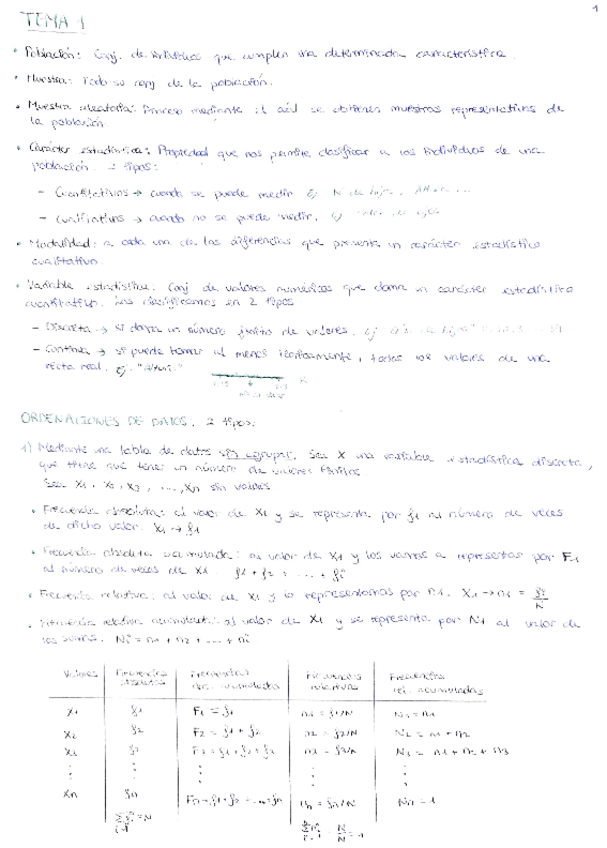 1
TEMA 1
• Población: Conj. de individuos que cumplen una determinada característica.
• Muestra: Todo su conj de la población.
• Muestra aleatoria: Proceso mediante el cual se obtienen muestras representativas de
la población
• Carácter estadístico: Propiedad que nos permite clasificar a los individuos de una
población. 2 tipos:
- Cuantitativos → cuando se puede medir Ej
- Cualitativos → cuando no se puede medir. Ej
• Modalidad: a cada una de las diferencias que presenta un carácter estadístico
cualitativo.
• Variable estadística: Conj de valores numéricos que toma un carácter estadístico
cuantitativo. Las clasificamos en 2 tipos
- Discreta → si toma un número finito de valores. Ej
- Continua → si puede tomar al menos teóricamente, todos los valores de una
recta real. Ej. "Altura"
ORDENACIONES DE DATOS. 2 tipos:
1) Mediante una tabla de datos sin agrupar. Sea X una variable estadística discreta,
que tiene que tener un número de valores finitos
Sea X1, X2, X3, ..., Xn sin valores
• Frecuencia absoluta: al valor de X1 y se representa por f1 al número de veces
de dicho valor. X1 → f1
• Frecuencia absoluta acumulada: al valor de X1 y los vamos a representar por F1
al número de veces de X1. f1 + f2 + ... + fi
• Frecuencia relativa: al valor de X1 y lo representamos por n1. X1 → n1 = fi/N
• Frecuencia relativa acumulada: al valor de X1 y se representa por N1 al valor de
las sumas. Ni = n1 + n2 + ... + ni
Valores Frecuencias absolutas Frecuencias abs. acumuladas Frecuencias relativas Frecuencias rel. acumuladas
X1 f1 F1 = f1 n1 = f1/N N1 = n1
X2 f2 F2 = f1 + f2 n2 = f2/N N2 = n1 + n2
X3 f3 F3 = f1 + f2 + f3 n3 = f3/N N3 = n1 + n2 + n3
⋮ ⋮ ⋮ ⋮ ⋮
Xn fn Fn = f1 + f2 + ... + fn nn = fn/N Nn = 1